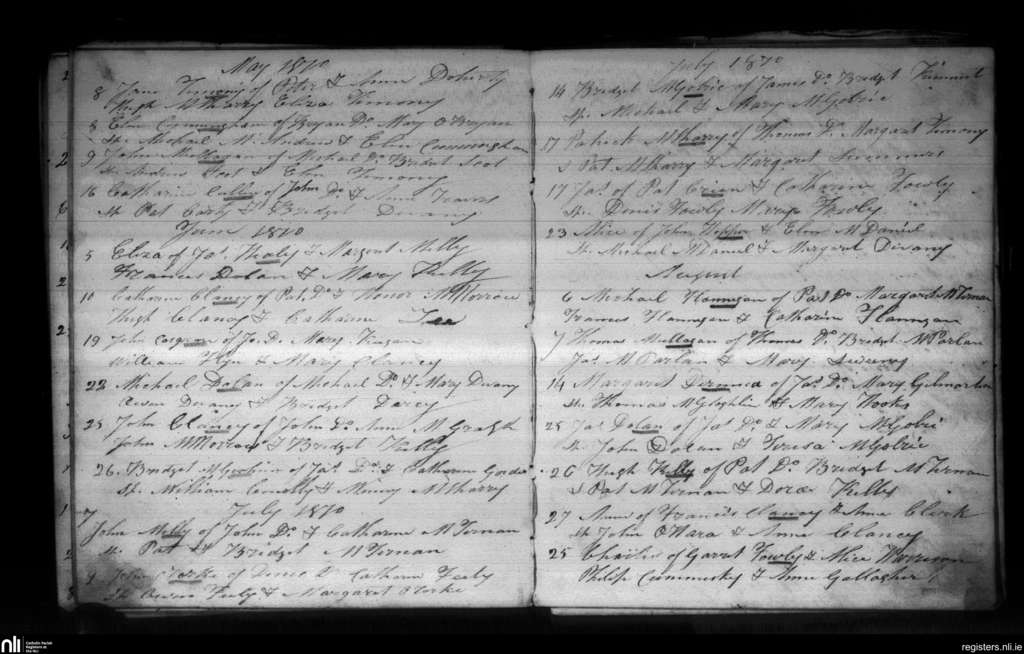 May 1870
8 Jane Timony of Peter & Anne Doherty
Hugh McSharry Eliza Timony
8 Ellen Cunningham of Bryan Do Mary O'Bryan
Sp. Michael McAndrew & Ellen Cunningham
9 John of Michael Do Bridget Scot
Sp. Andrew Scot & Ellen Timony
16 Catharine of John Do & Anne Travers
Sp. Pat & Bridget Devany
June 1870
5 Eliza of Jas. Healy & Margaret Melly
Francis Dolan & Mary Kelly
10 Catharine Clancy of Pat. Do & Honor McMorrow
Hugh Clancy & Catharine
19 John Corgran of Jo. Do Mary
William & Mary Clancey
22 Michael Dolan of Michael Do & Mary Devany
Owen Devany & Bridget Darcy
25 John Clancy of John Do Ann McGragh
John McMorrow & Bridget Kelly
26 Bridget McGobrie of Jas. Do & Catharine
Sp. William Connolly & McSharry
July 1870
7
John Melly of John Do & Catharine McTernan
Sp. Pat & Bridget McTernan
9 John of Denis & Catharine Feely
Sp. Owen Feely & Margaret O'Rorke
July 1870
14 Bridget McGobrie of James Do Bridget
Sp. Michael & Mary McGobrie
17 Patrick McSharry of Thomas Do Margaret Timony
S Pat. McSharry & Margaret
17 Jas. of Pat Crien & Catharine Fowly
Sp. Denis Fowly Mary Fowly
23 Alice of John & Ellen McDaniel
Sp. Michael McDaniel & Margaret Devany
August
6 Michael Flannagan of Pat Do Margaret McTernan
Francis Flannagan & Catharine Flannagan
7 Thomas Mullagan of Thomas Do Bridget McParlan
Jas. McParlan & Mary Sweeny
14 Margaret of Jas. Do Mary
Sp. Thomas McGloghlin & Mary Rooks
25 Jas. Dolan of Jas. Do & Mary McGobrie
Sp. John Dolan & Teresa McGobrie
26 Hugh Kelly of Pat Do Bridget McTernan
S Pat McTernan & Dora Kelly
27 Anne of Francis Clancy & Anne Clark
Sp. John O'Hara & Anne Clancy
25 Charles of Garret Fowly & Alice Morrison
Philip Cummusky & Anne Gallagher
nli
Catholic Parish
Registers at
the NLI
registers.nli.ie